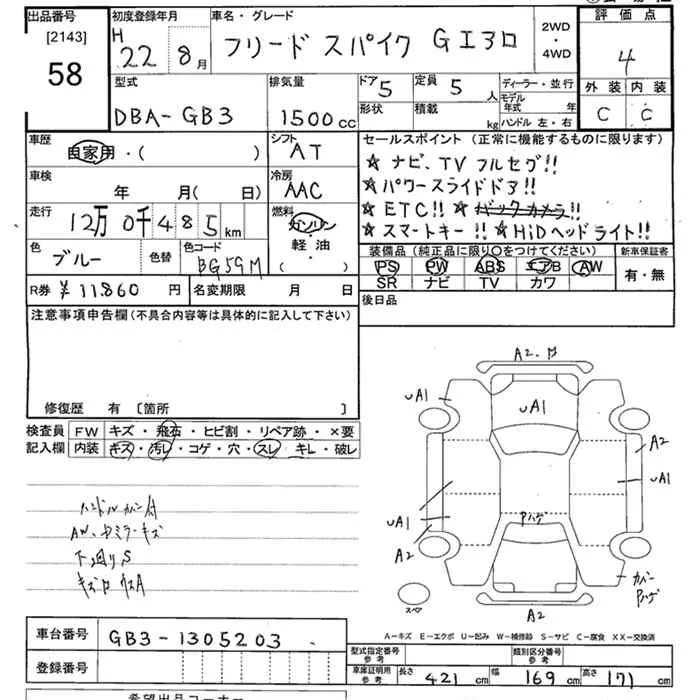 出品番号
[2143]
58
初度登録年月
H 22 8月
車名・グレード
フリード スパイク Gエアロ
2WD
・
4WD
評価点
4
外装 内装
C C
型式
DBA-GB3
排気量
1500cc
ドア 5
定員 5 人
形状
積載 kg
ディーラー・並行
モデル年式 年
ハンドル 左・右
車歴
自家用・( )
シフト
AT
車検
年 月( 日)
冷房
AAC
走行
12万 0千 4 8 5 km
燃料
ガソリン
・
軽油
( )
色
ブルー
色替
色コード
BG59M
R券 ¥11860 円
名変期限 月 日
セールスポイント (正常に機能するものに限ります)
☆ ナビ、TV フルセグ!!
☆パワースライドドア!!
☆ETC!! ☆バックカメラ!!
☆スマートキー!! ☆HiDヘッドライト!!
装備品(純正品に限り〇をつけてください)
新車保証書
PS PW ABS エアB AW
SR ナビ TV カワ
有・無
後日品
注意事項申告欄(不具合内容等は具体的に記入して下さい)
修復歴 有 〔箇所 〕
検査員記入欄
FW キズ・飛石・ヒビ割・リペア跡・×要
内装 キズ・汚レ・コゲ・穴・スレ・キレ・破レ
ハンドルカバー付
AW、ドミラーキズ
下廻りS
A2.
UA1
UA1
A2
UA1
UA1
A2
Pハゲ
カバー
Pハゲ
スペア
A2
A-キズ E-エクボ U-凹み W-補修跡 S-サビ C-腐食 XX-交換済
車台番号
GB3-1305203
登録番号
型式指定番号
参考
類別区分番号
参考
車庫証明用
参考
長さ 421 cm
幅 169 cm
高さ 171 cm
希望出品コーナー